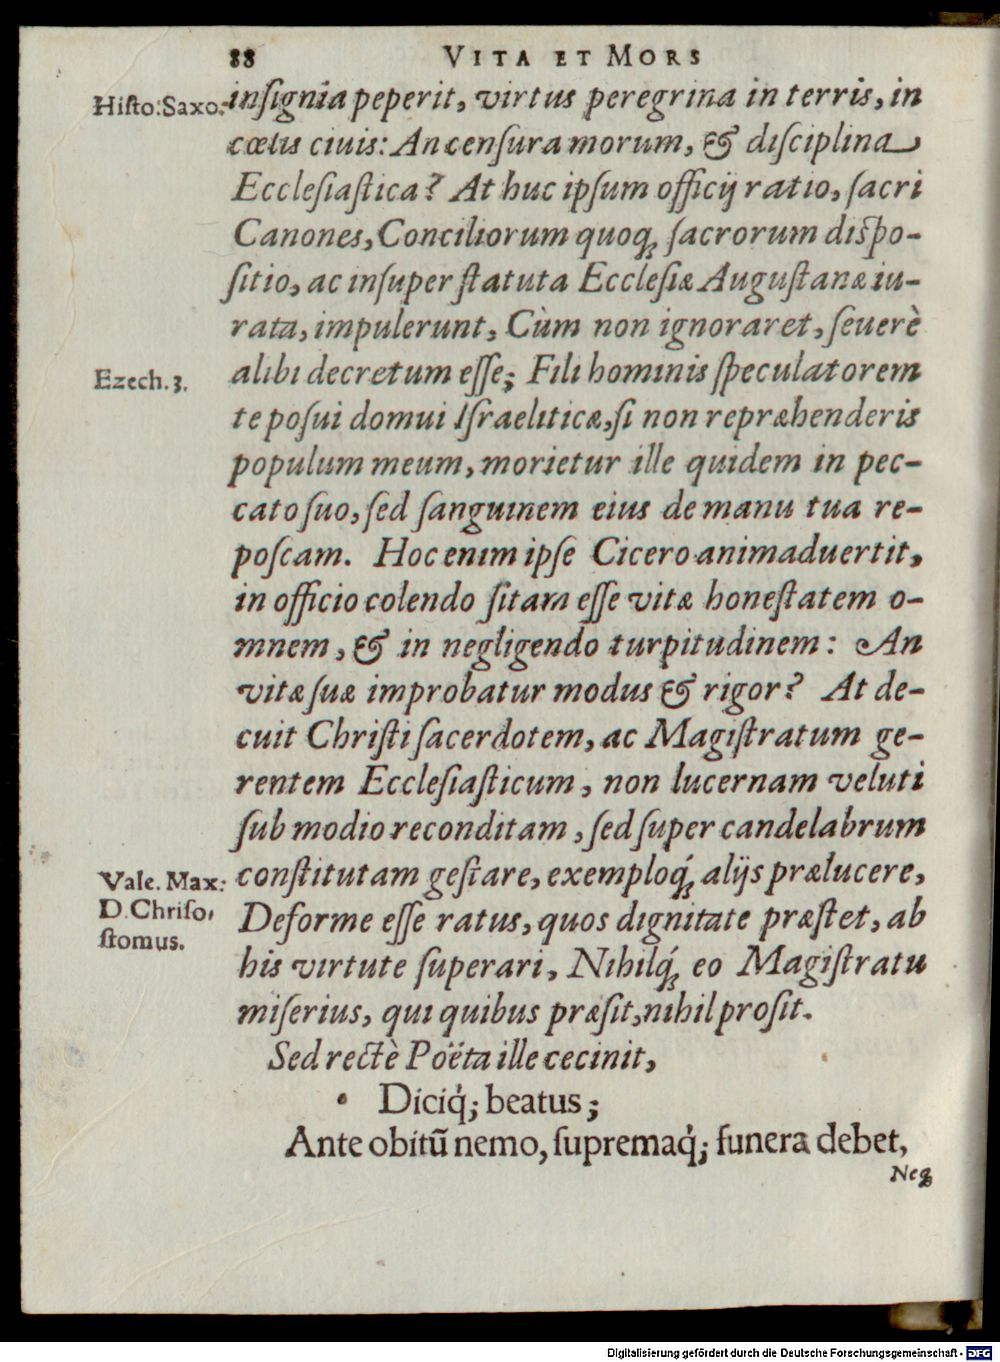 88 VITA ET MORS
Histo: Saxo.
inſignia peperit, virtus peregrina in terris, in
cœlis ciuis: An cenſura morum, & diſciplina
Eccleſiaſtica? At huc ipſum officij ratio, ſacri
Canones, Conciliorum quoq́ ſacrorum diſpo-
ſitio, ac inſuper ſtatuta Eccleſiæ Auguſtanæ iu-
rata, impulerunt, Cùm non ignoraret, ſeuerè
Ezech. 3.
alibi decretum eſſe; Fili hominis ſpeculatorem
te poſui domui Iſraeliticæ, ſi non repræhenderis
populum meum, morietur ille quidem in pec-
cato ſuo, ſed ſanguinem eius de manu tua re-
poſcam. Hoc enim ipſe Cicero animaduertit,
in officio colendo ſitam eſſe vitæ honeſtatem o-
mnem, & in negligendo turpitudinem: An
vitæ ſuæ improbatur modus & rigor? At de-
cuit Chriſti ſacerdotem, ac Magiſtratum ge-
rentem Eccleſiaſticum, non lucernam veluti
ſub modio reconditam, ſed ſuper candelabrum
Vale. Max:
D. Chriſo,
ſtomus.
conſtitutam geſtare, exemploq́ alijs prælucere,
Deforme eſſe ratus, quos dignitate præſtet, ab
his virtute ſuperari, Nihilq́ eo Magiſtratu
miſerius, qui quibus præſit, nihil proſit.
Sed rectè Poëta ille cecinit,
Diciq́; beatus;
Ante obitū nemo, ſupremaq́; funera debet,
Neq
Digitalisierung gefördert durch die Deutsche Forschungsgemeinschaft - DFG